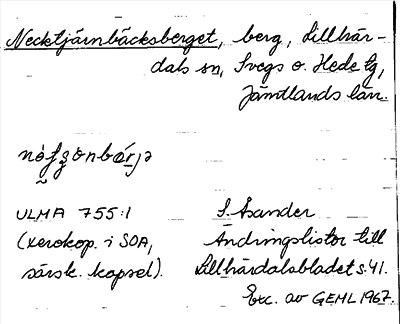 Necktjärnbäcksberget, berg, Lillhär-
dals sn, Svegs o. Hede tg,
Jämtlands län.
ULMA 755:1
(xerokop. i SOA,
särsk. kapsel).
S. Asander
Ändringslistor till
Lillhärdalsbladet s. 41.
Exc. av GEHL 1967.